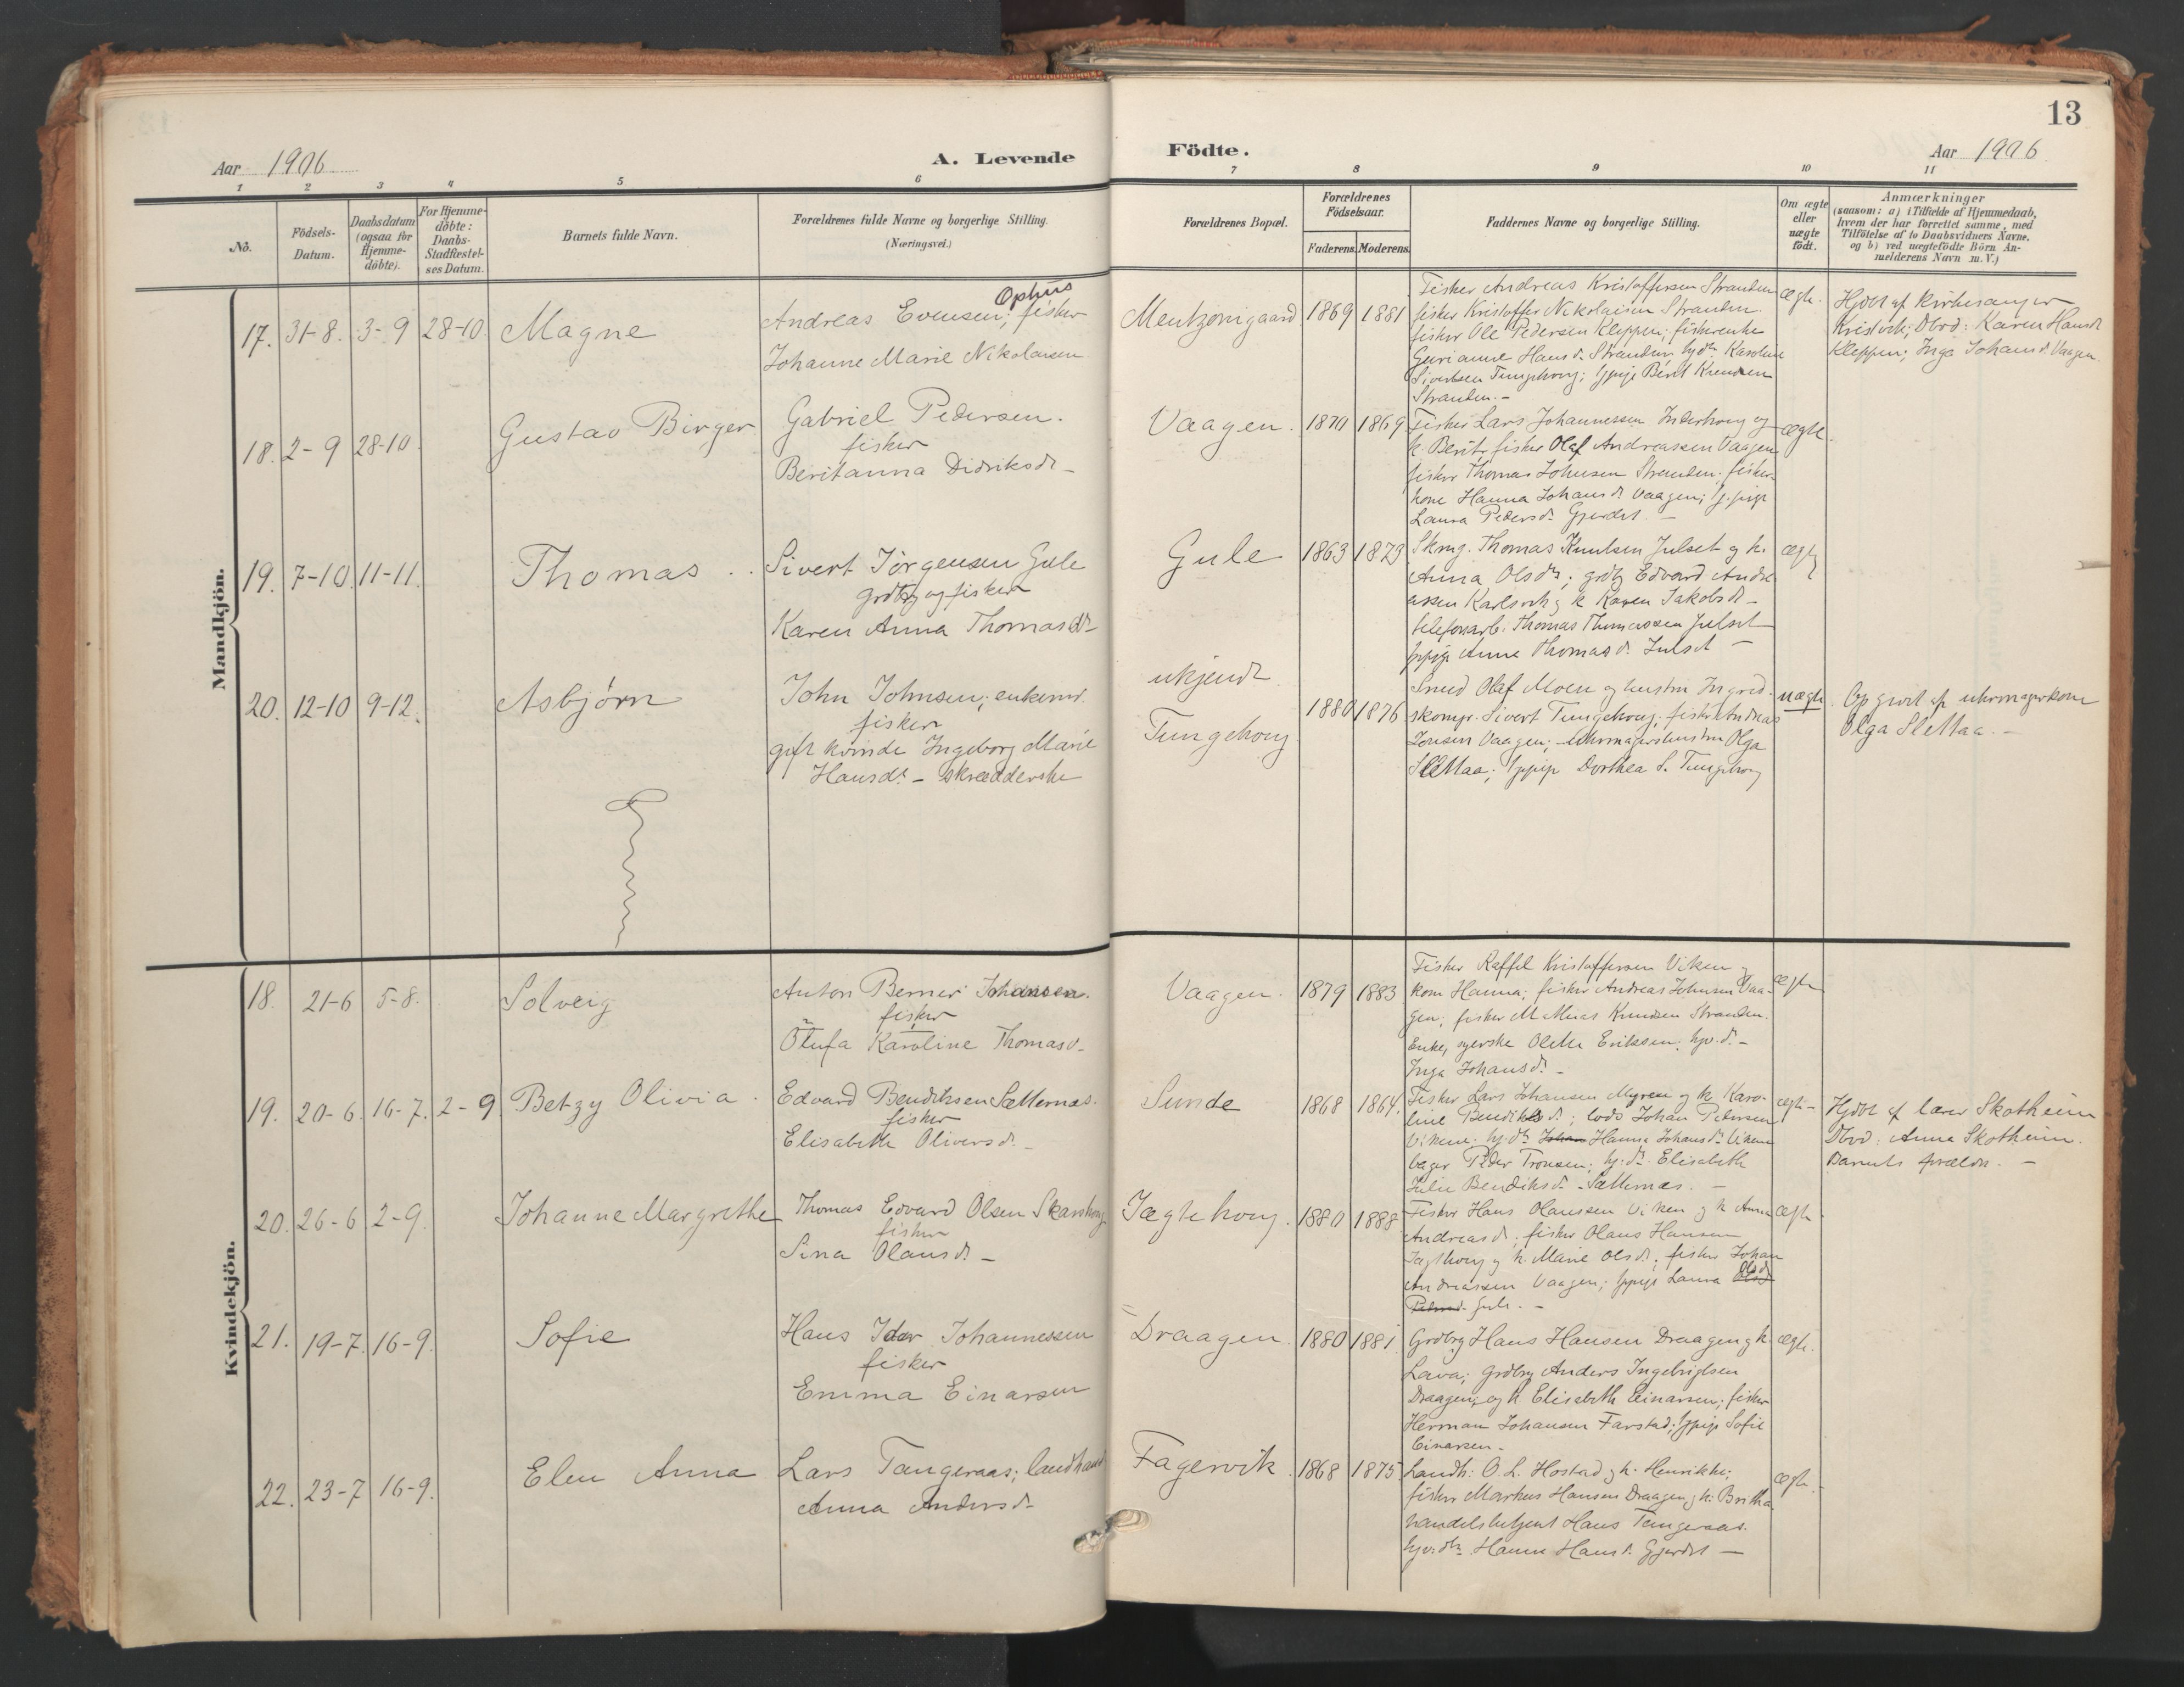 13
Aar 1906
A. Levende Födte.
Aar 1906
1 2 3 4 5 6 7 8 9 10 11
No.
Födsels-
Datum.
Daabsdatum
(ogsaa for
Hjemme-
döbte).
For Hjemme-
döbte:
Daabs-
Stadfæstel-
ses Datum.
Barnets fulde Navn.
Forældrenes fulde Navne og borgerlige Stilling.
(Næringsvei.)
Forældrenes Bopæl.
Forældrenes
Födselsaar.
Faderens. Moderens.
Faddernes Navne og borgerlige Stilling.
Om ægte
eller
uægte
födt.
Anmærkninger
(saasom: a) i Tilfælde af Hjemmedaab,
hvem der har forrettet samme, med
Tilföielse af to Daabsvidners Navne,
og b) ved uægtefödte Börn An-
melderens Navn m. V.)
Mandkjön.
17. 31-8. 3-9 28-10 Magne
Ophus
Andreas Evensen; fisker
Johanne Marie Nikolaisen
Mentzonigaard 1869 1881
Fisker Andreas Kristoffersen Stranden
fisker Kristoffer Nikolaisen Stranden.
fisker Ole Pedersen Kleppen; fiskerenke
Gurianne Hansd. Stranden, hjdtr Karoline
Sivertsen Tungehoug; Berit Knudsen
Stranden.-
ægte.
Hjdbt af kirkesanger
Kristvik; Dbvd: Karen Hansdr
Kleppen; Inga Johansdr. Vaagen.
18. 2-9 28-10. Gustav Birger
Gabriel Pedersen.
fisker
Beritanna Didriksdr-
Vaagen. 1870 1869
Fisker Lars Johannessen Inderhoug og
k. Berit; fisker Olaf Andreassen Vaagen
fisker Thomas Johnsen Stranden; fisker-
kone Hanna Johansdr. Vaagen;
Laura Pedersdr. Gjerdet.-
ægte.
19. 7-10. 11-11. Thomas.
Sivert Jörgensen Gule
grdbr og fisker
Karen Anna Thomasdr-
Gule 1863 1873
Thomas Knutsen Julset og k.
Anna Olsdtr; grdbr Edvard Andre-
assen Karlsvik og k Karen Jakobsdr-
telefonarb. Thomas Thomassen Julset
Anne Thomasdr. Julset-
ægte
20. 12-10 9-12. Asbjörn
John Johnsen; enkemd.
fisker
gift kvinde Ingeborg Marie
Hansdr.- skrædderske
ukjendt
Tungehoug
1880 1876
Smed Olaf Moen og hustru Ingrid.
skompr. Sivert Tungehoug; fisker Andreas
Jonsen Vaagen; uhrmagerhustru Olga
Slettaa; Dorthea S. Tungehoug
uægte.
Opgivet af uhrmagerkone
Olga Slettaa.-
Kvindekjön.
18. 21-6 5-8. Solveig
Anton Berner Johansen.
fisker
Olufa Karoline Thomasd-
Vaagen. 1879 1883
Fisker Raffel Kristoffersen Viken og
kone Hanna; fisker Andreas Johnsen Vaa-
gen; fisker Mathias Knudsen Stranden.
Enke, syerske Olette Eriksen; hjv.dr.-
Inga Johansdr.-
ægte
19. 20-6. 16-7. 2-9 Betzy Olivia.
Edvard Bendiksen Sætternes.
fisker
Elisabeth Oliversdr.-
Sunde 1868 1864.
Fisker Lars Johansen Myren og k. Karo-
line Bendiksdr.; lods Johan Pedersen
Vikene. hj.dtr Johan Hanna Johansdr Vikene
bager Peder Tronsen; hj.dr. Elisabeth
Julie Bendiksdr. Sætternes.-
ægte-
Hjdbt af lærer Skotheim
Dbvd: Anna Skotheim.
Barnets forældre.-
20. 26-6 2-9. Johanne Margrethe
Thomas Edvard Olsen Skarshoug
fisker
Sina Olausdr-
Jægtehoug. 1880 1888
Fisker Hans Olaussen Viken og k Anna
Andreasdr; fisker Olaus Hansen
Jægthoug og k. Marie Olsdr; fisker Johan
Andreassen Vaagen; Laura Olsdr
Pedersd. Gule.-
ægte.
21. 19-7. 16-9. Sofie
Hans Idar Johannessen
fisker
Emma Einarsen
Draagen. 1880 1881.
Grdbr Hans Hansen Draagen og k.
Lava; grdbr Anders Ingebrigtsen
Draagen og k. Elisabeth Einarsen; fisker
Herman Johansen Farstad; Sofie
Einarsen.
ægte.
22. 23-7 16-9. Elen Anna
Lars Tangeraas; landhand
Anna Andersdr-
Fagervik. 1868 1875
Landh: O. L. Hostad og k. Henrikke;
fisker Markus Hansen Draagen og k: Britha
handelsbetjent Hans Tangeraas.
hjv.dtr. Hanne Hansdr. Gjerdet-
ægte.